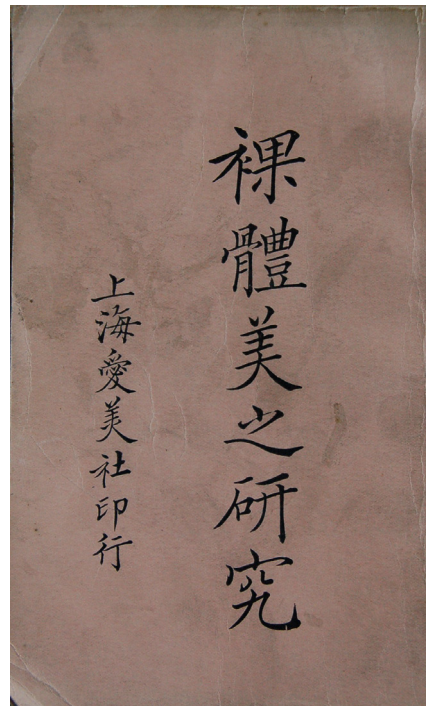 裸體美之研究
上海愛美社印行